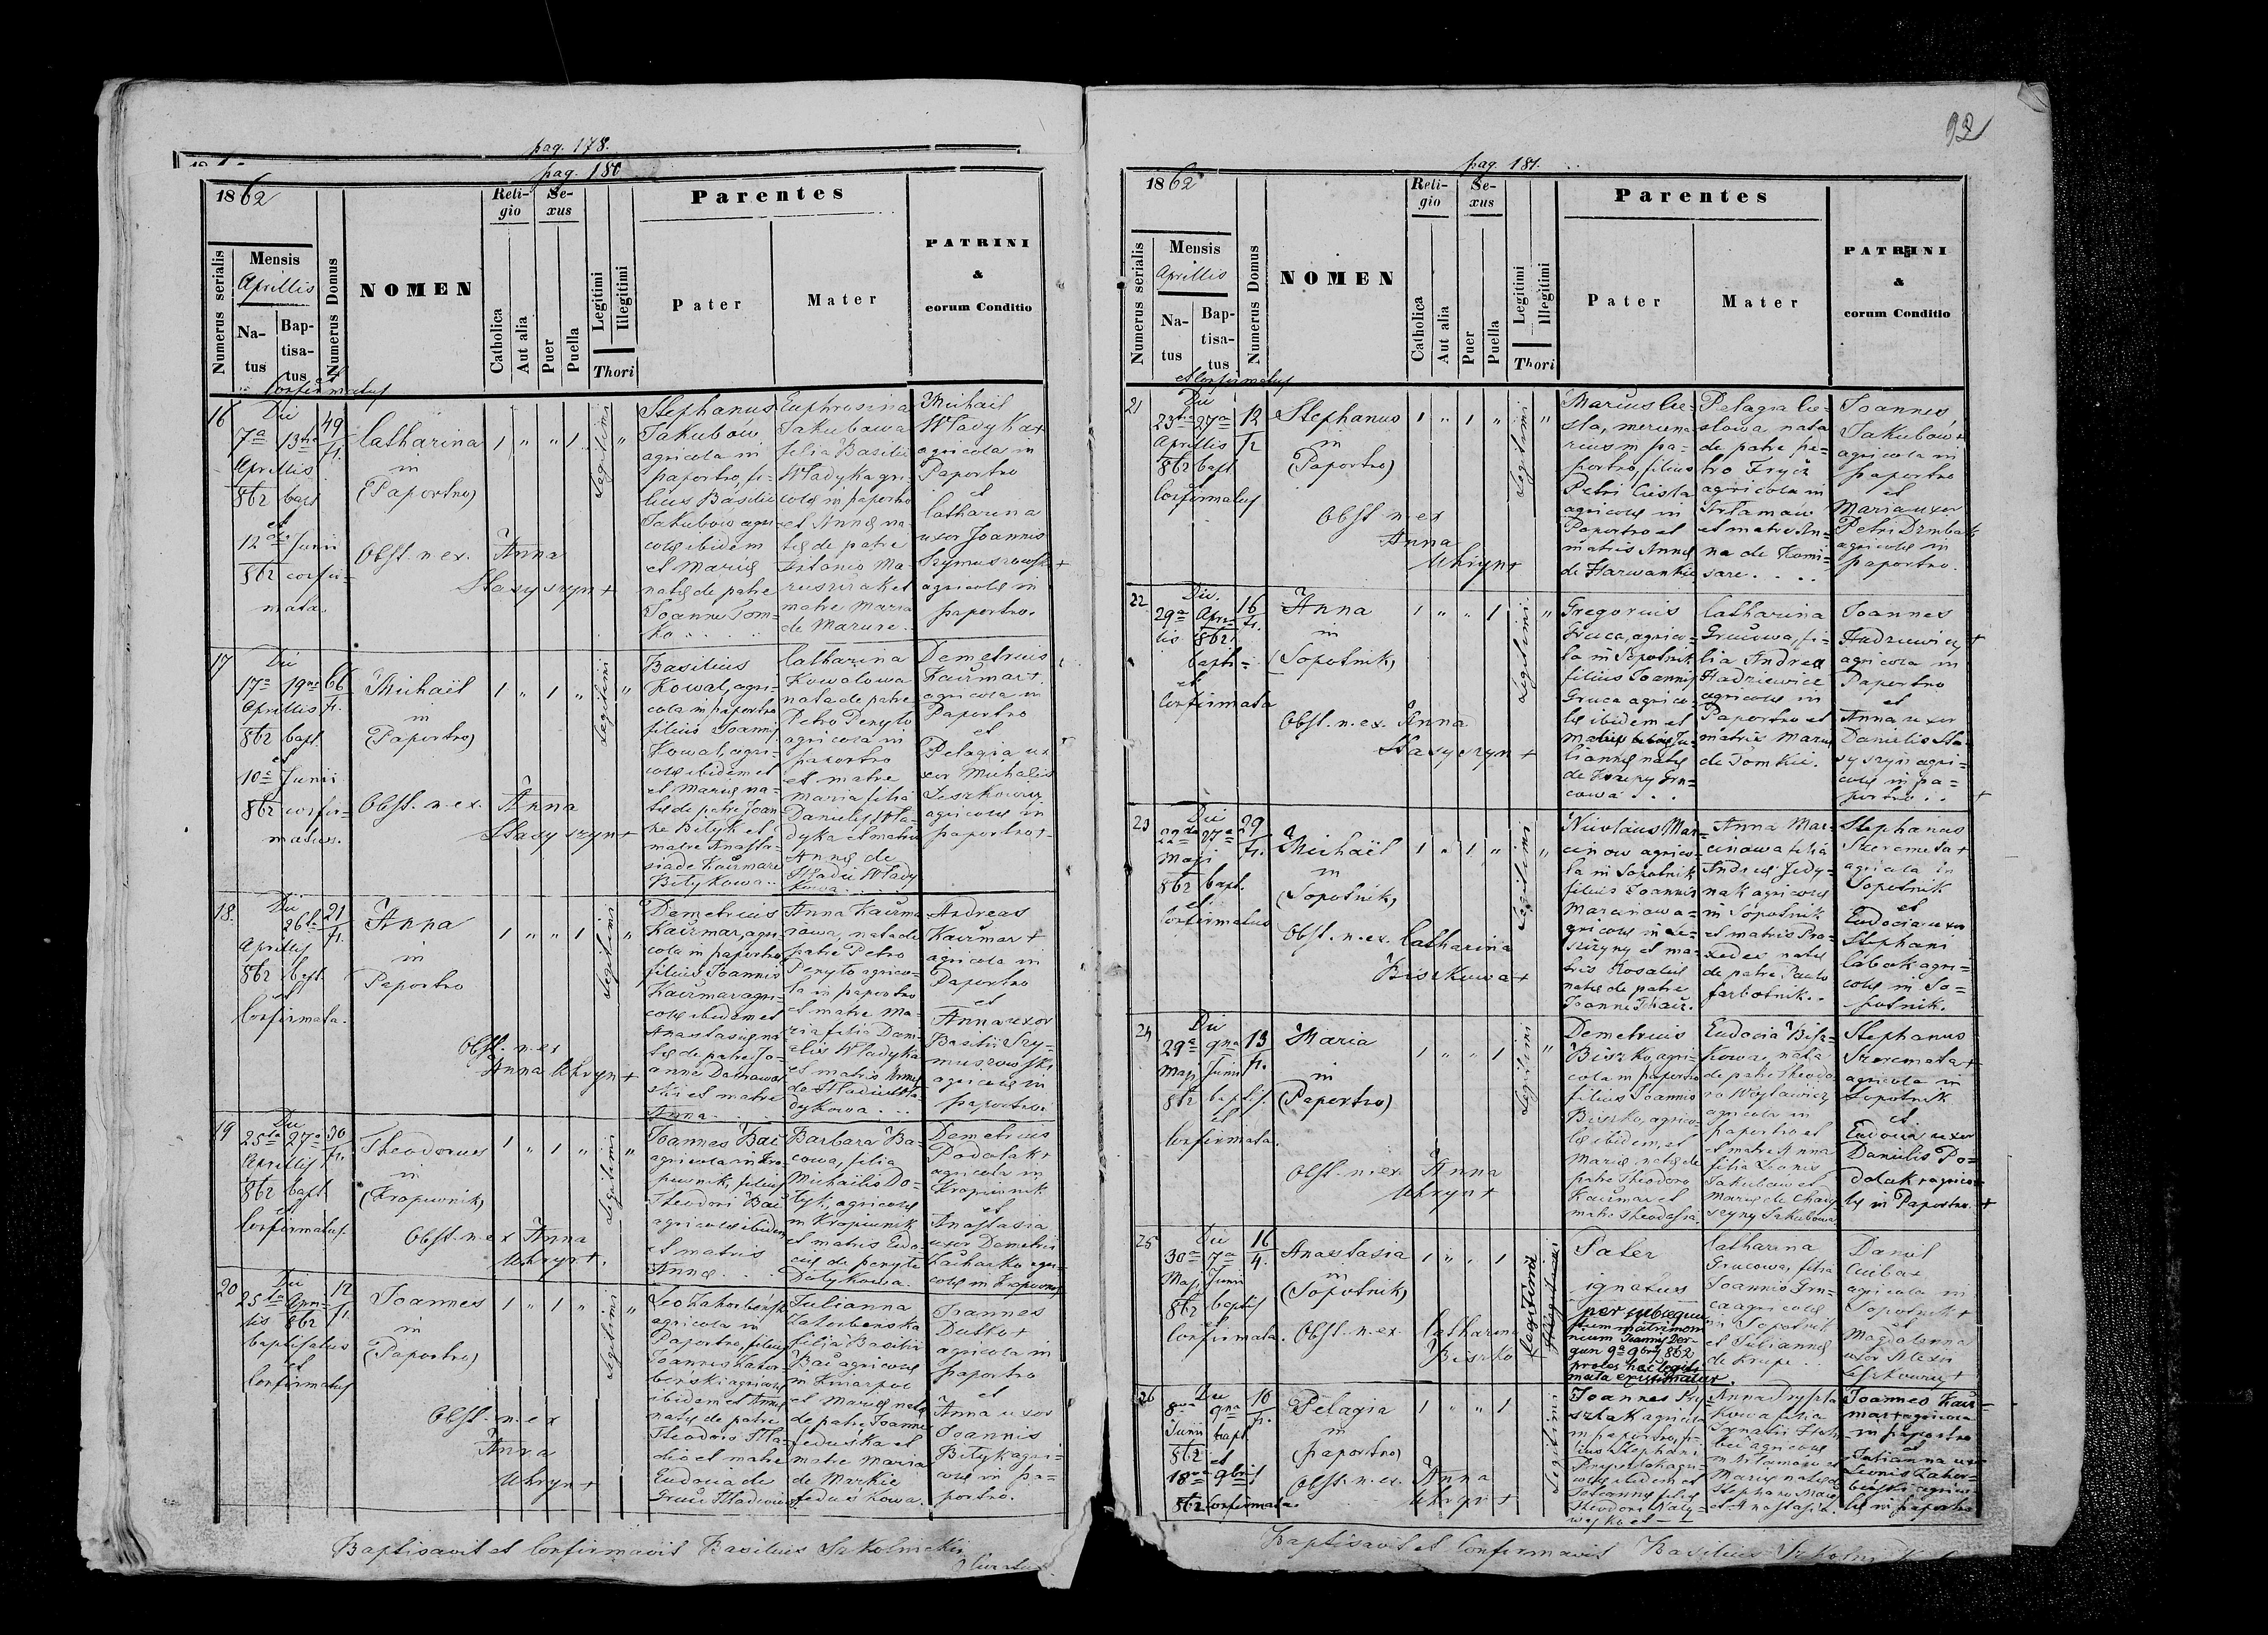 92
pag. 178.
pag. 180
1862
Numerus serialis
Mensis
Aprillis
Natus
Baptisatus
et Confirmatus
Numerus Domus
NOMEN
Religio
Catholica
Aut alia
Sexus
Puer
Puella
Legitimi
Illegitimi
Thori
Parentes
Pater
Mater
PATRINI
&
eorum Conditio
16
Die
7a 13tia
Aprillis
862 bapt
et
12 Junii
862 confir-
mata
49
fr.
Catharina
in
(Paportno)
Obst. n. ex. Anna
Stasyszyn +
1 " " 1
Legitimi
"
Stephanus
Jakubów
agricola in
paportno, fi-
lius Basilii
Jakubow agri
colæ ibidem
et Mariæ
natæ de patre
Joanne Tom-
ko . . . .
Euphrosina
Jakubowa
filia Basilii
Wladyka gri-
colæ in paportno
et Annæ na-
tæ de patre
Antonio Ma-
matre Maria
de Mazure .
Michail
Wladyka +
agricola in
Paportno
et
Catharina
uxor Joannis
Szymuszowski +
agricolæ in
paportno.
17
Die
17a 19na
Aprillis
862 bapt.
et
10a Junii
862 confir-
matus.
66
fr.
Michaël
in
(Paportno)
Obst. n. ex. Anna
Stasyszyn +
1 " 1 "
Legitimi
"
Basilius
Kowal, agri-
cola in paportno
filius Joannis
Kowal, agri-
colæ ibidem et
et Mariæ na-
tæ de patre Joan
ne Bityk et
matre Anasta-
sia de Kaczmare
Bitykowa . .
Catharina
Kowalowa
nata de patre
Petro Penyło
agricola in
paportno
et matre
Maria filia
Danielis Wla-
dyka et matris
Annæ de
Hladii Wlady
kowa . . .
Demetrius
Kaczmar +
agricola in
Paportno
et
Pelagia ux
xor Michalis
Leszkowicz
agricolæ in
paportno +
18.
Die
26ta
Aprillis
862 bapt
et
Confirmata.
21
fr.
Anna
in
Paportno
Obst. n. ex
Anna Uhryn +
1 " " 1
Legitimi
"
Demetrius
Kaczmar, agri
cola in paportno
filius Joannis
Kaczmar agri-
colæ ibidem et
Anastasiæ na
tæ de patre Jo-
anne Darnawa
ski et matre
Anna . . .
Anna Kaczma
rowa, nata de
patre Petro
Penyło agrico-
la in paportno
et matre Ma-
ria filia Dani-
elis Wladyka
et matris Annæ
de Hladii Wla
dykowa . . .
Andreas
Kaczmar +
agricola in
Paportno
et
Anna uxor
Basilii Szy-
muszowski
agricolæ in
paportno.
19
Die
25ta 27a
Aprillis
862 bapt
et
Confirmatus.
30
fr.
Theodorus
in
(Kropiwnik)
Obst. n. ex Anna
Uhryn +.
1 " 1 "
Legitimi
"
Joannes Bac
agricola in Kro-
piwnik, filius
Theodori Bac
agricolæ ibidem
et matris
Annæ . . .
Barbara Ba-
cowa, filia
Michailis Do-
tyk, agricolæ
in Kropiwnik
et matris Eudo-
ciæ de penyło
Dotykowa.
Demetrius
Podolak +
agricola in
Kropiwnik
et
Anastasia
uxor Demetrii
Zacharko agri-
colæ in Kropiwnik
20
Die
25ta Apri-
lis 862
baptisatus
et
Confirmatus
12
fr.
Joannes
in
(Paportno)
Obst. n. ex
Anna
Uhryn +
1 " 1 "
Legitimi
"
Leo Zahorbenski
agricola in
Paportno, filius
Joannis Zahor-
benski agricolæ
ibidem et Annæ
natæ de patre
Theodoro Hla-
dio et matre
Eudocia de
Julianna
Zahorbenska
filia Basilii
Bac agricolæ
in Kniazpol
et Mariæ natæ
de patre Joanne
Feduśka et
matre Maria
de Markie
Feduśkowa.
Joannes
Dutko +
agricola in
paportno
et
Anna uxor
Joannis
Bityk agri-
colæ in pa-
portno.
Baptisavit et Confirmavit Basilius Szkolnicki
pag. 181.
1862
Numerus serialis
Mensis
Aprillis
Natus
Baptisatus
et Confirmatus
Numerus Domus
NOMEN
Religio
Catholica
Aut alia
Sexus
Puer
Puella
Legitimi
Illegitimi
Thori
Parentes
Pater
Mater
PATRINI
&
eorum Conditio
21
Die
23tia 27a
Aprillis
862 bapt
et
Confirmatus
12
fr
Stephanus
in
(Paportno)
Obst. n. ex
Anna
Uhryn +
1 " 1 "
Legitimi
"
portno, filius
Petri Ciesla
agricolæ in
Paportno et
matris Annæ
de Harwankie
Pelagia Cie-
slowa nata
de patre pe-
tro Frycz
agricola in
et matre An-
na de Komi-
sare . . . .
Joannes
Jakubów +
agricola in
paportno
et
Maria uxor
Petri Dzmbak
agricolæ in
paportno.
22
Die.
29a Apri-
lis 862.
bapti-
et
Confirmata
16
fr.
Anna
in
(Sopotnik)
Obst. n. ex. Anna
Stasyszyn +
1 " " 1
Legitimi.
"
Gregorius
Gruca, agrico-
la in Sopotnik
filius Joannis
Gruca agrico-
læ ibidem et
liannæ natæ
cowa . . .
Catharina
Grucowa, fi-
lia Andrea
Hadziewicz
agricolæ in
Paportno et
matris Mariæ
de Tomkie.
Joannes
Hadziewicz +
agricola in
Paportno
et
Anna uxor
Danielis Sta-
syszyn agri-
colæ in pa-
portno . . +
23
Die
22da 27a
Maji
862 bapt.
et
Confirmatus
29
fr.
Michaël
in
(Sopotnik)
Obst. n. ex. Catharina
Biszkowa +
1 " 1 "
Legitimi
"
Nicolaus Mar-
cinow agrico-
la in Sopotnik
filius Joannis
Marcinowa-
gricolæ in Le-
szczyny et ma-
tris Rosaliæ
natæ de patre
Anna Mar-
cinowa filia
Andreæ Jedy-
nak agricolæ
in Sopotnik
et matris Pra-
xedex natæ
de patre Paulo
farbotnik. .
Stephanus
Szeremeta +
agricola in
Sopotnik
et
Eudocia uxor
Stephani
Łabak agri-
colæ in So-
potnik.
24
Die
29a 9na
Maji Junii
862 baptis.
et
Confirmata.
13
fr.
Maria
in
(Paportno)
Obst. n. ex Anna
Uhryn +
1 " " 1
Legitimi
"
Demetrius
Biszko, agri-
cola in paportno
filius Joannis
Biszko, agrico-
læ ibidem, et
Mariæ natæ de
patre Theodoro
Kaczmar et
matre Theodosia.
Eudocia Bisz-
kowa, nata
de patre Theodo
ro Woytowicz
agricola in
paportno et
et matre Anna
filia Leonis
Jakubow et
Mariæ de Char-
szyny Jakubowa
Stephanus
Szeremeta +
agricola in
Sopotnik
et
Eudocia uxor
Danielis Po-
dolak agrico-
læ in Paportno. +
25
Die
30a 7a
Maji Junii
862 baptis
et
Confirmata.
16
4.
Anastasia
in
(Sopotnik)
Obst. n. ex. Catharina
Biszko
1 " " 1
Legitimi
Illegitimi
Pater
ignotus
per subsequen
tem matrimon
nium Joannis Der-
gun 9a 9bris 862
proles hæc legiti
mata existimatur.
Catharina
Grucowa, filia
Joannis Gru-
ca agricolæ
in Sopotnik
et Juliannæ
de Krupe . .
Daniel
Cuiba +
agricola in
Sopotnik +
et
Magdalenna
uxor Alexii
Leszkowicz +
26
Die
8va 9na
Junii bapt.
862 et
18va 9bris
862 Confirmata.
10
fr.
Pelagia
in
(paportno)
Obst. n. ex. Anna
Uhryn +
1 " " 1
Legitimi
Joannes Pry-
sztak agricola
in paportno, fi-
lius Stephani
Prysztak agri-
colæ ibidem et
Juliannæ filiæ
Theodori Naly-
wajko et —
Anna Pryszta
kowa filia
Ignatii Hołu-
bec agricolæ
Mariæ natæ de
et Anastasia.
Joannes Kacz-
mar + agricola
in paportno
et
Julianna uxor
Leonis Zahor-
benski agrico-
læ in paportno
Baptisavit et Confirmavit Basilius Szkolnicki